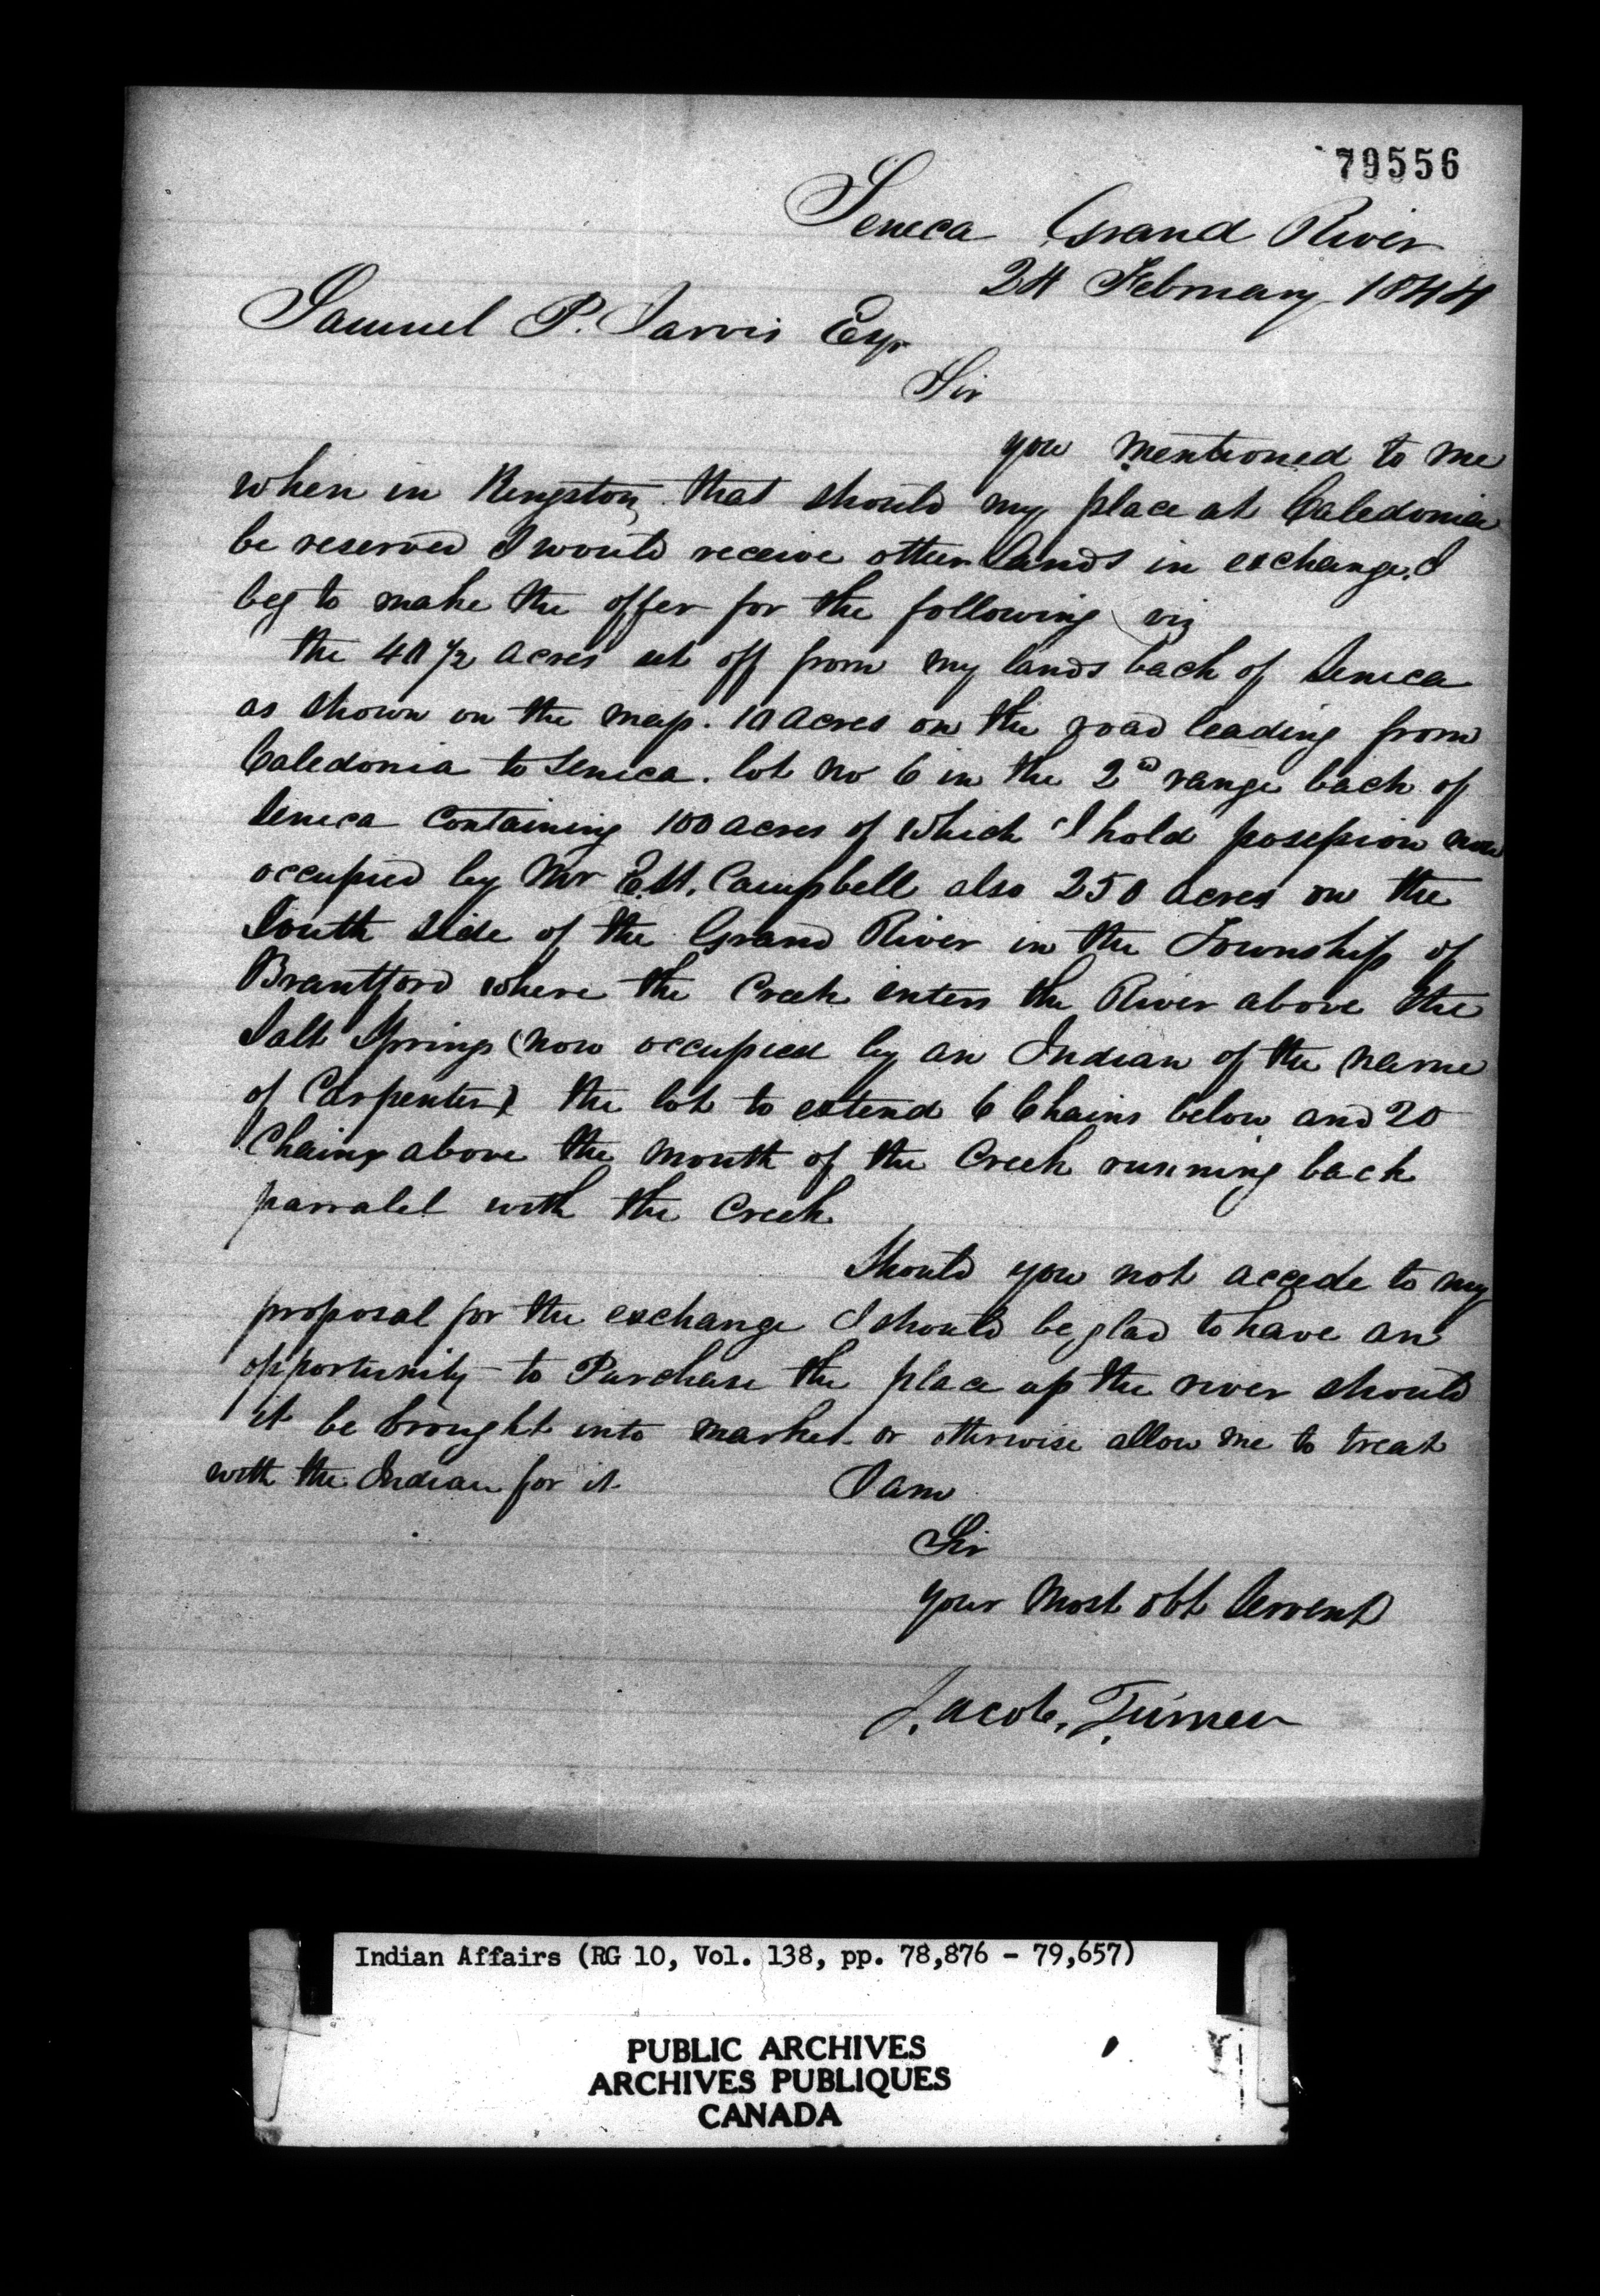 79556
Seneca Grand River
24 February 1844
Samuel P. Jarvis Esqr
Sir
you mentioned to me
when in Kingston that should my place at Caledonia
be reserved I would receive other lands in exchange. I
beg to make the offer for the following viz
the 40 1/2 acres set off from my lands back of Seneca
as shown on the map. 10 acres on the road leading from
Caledonia to Seneca. lot no 6 in the 2nd range back of
Seneca containing 100 acres of which I hold possession now
occupied by Mr E.H. Campbell also 250 acres on the
South side of the Grand River in the Township of
Brantford where the Creek enters the River above the
Salt Springs (now occupied by an Indian of the name
of Carpenter) the lot to extend 6 Chains below and 20
Chains above the mouth of the Creek running back
parralel with the Creek
Should you not accede to my
proposal for the exchange I should be glad to have an
opportunity to Purchase the place up the river should
it be brought into market or otherwise allow me to treat
with the Indian for it
I am
Sir
your most obt Servent
Jacob, Turner
Indian Affairs (RG 10, Vol. 138, pp. 78,876 - 79,657)
PUBLIC ARCHIVES
ARCHIVES PUBLIQUES
CANADA